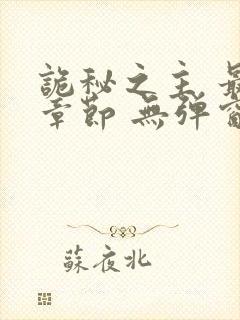 詭秘之主 最
章節 無彈窗
蘇夜北